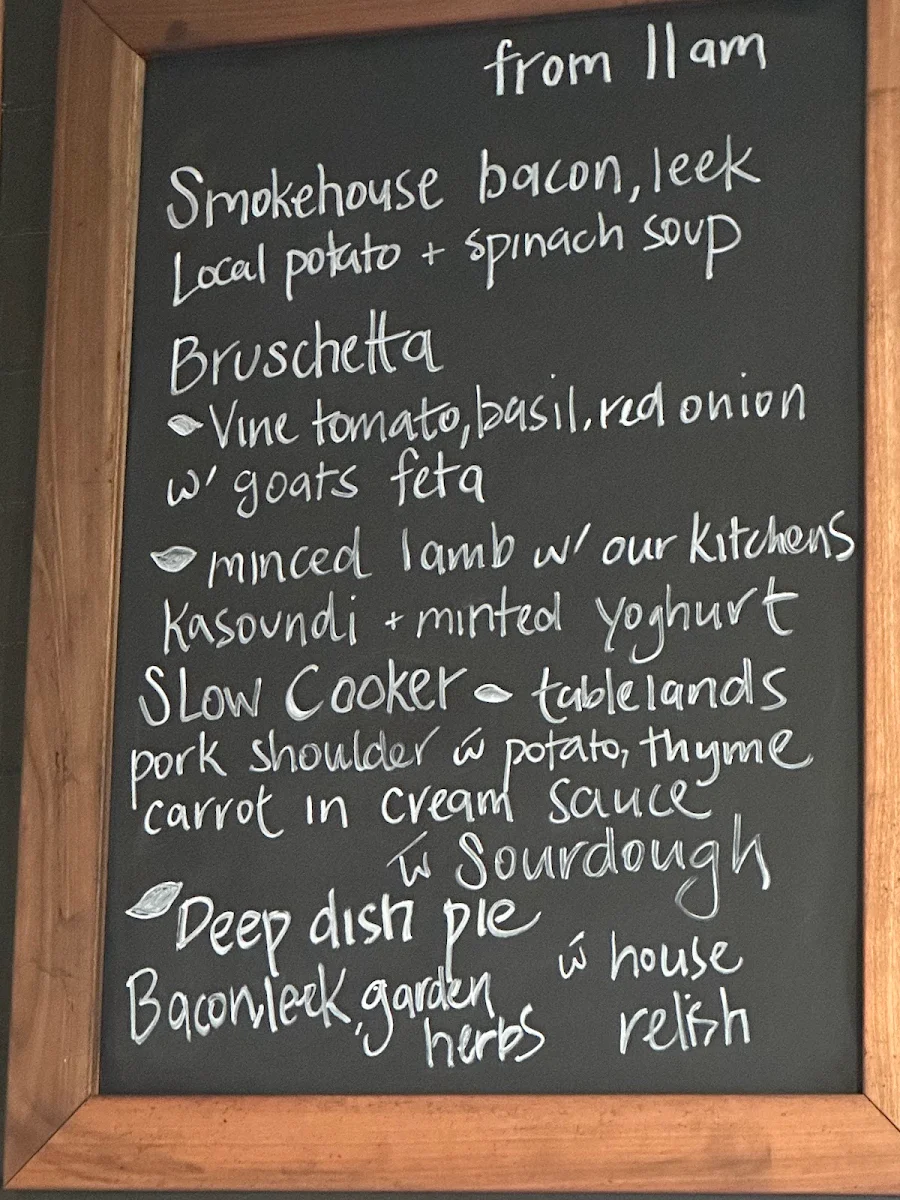 from 11am
Smokehouse bacon, leek
Local potato + spinach soup
Bruschetta
Vine tomato, basil, red onion
w/ goats feta
minced lamb w/ our kitchens
Kasoundi + minted yoghurt
Slow Cooker tablelands
pork shoulder w potato, thyme
carrot in cream sauce
w Sourdough
Deep dish pie
w house
Bacon, leek, garden
herbs relish